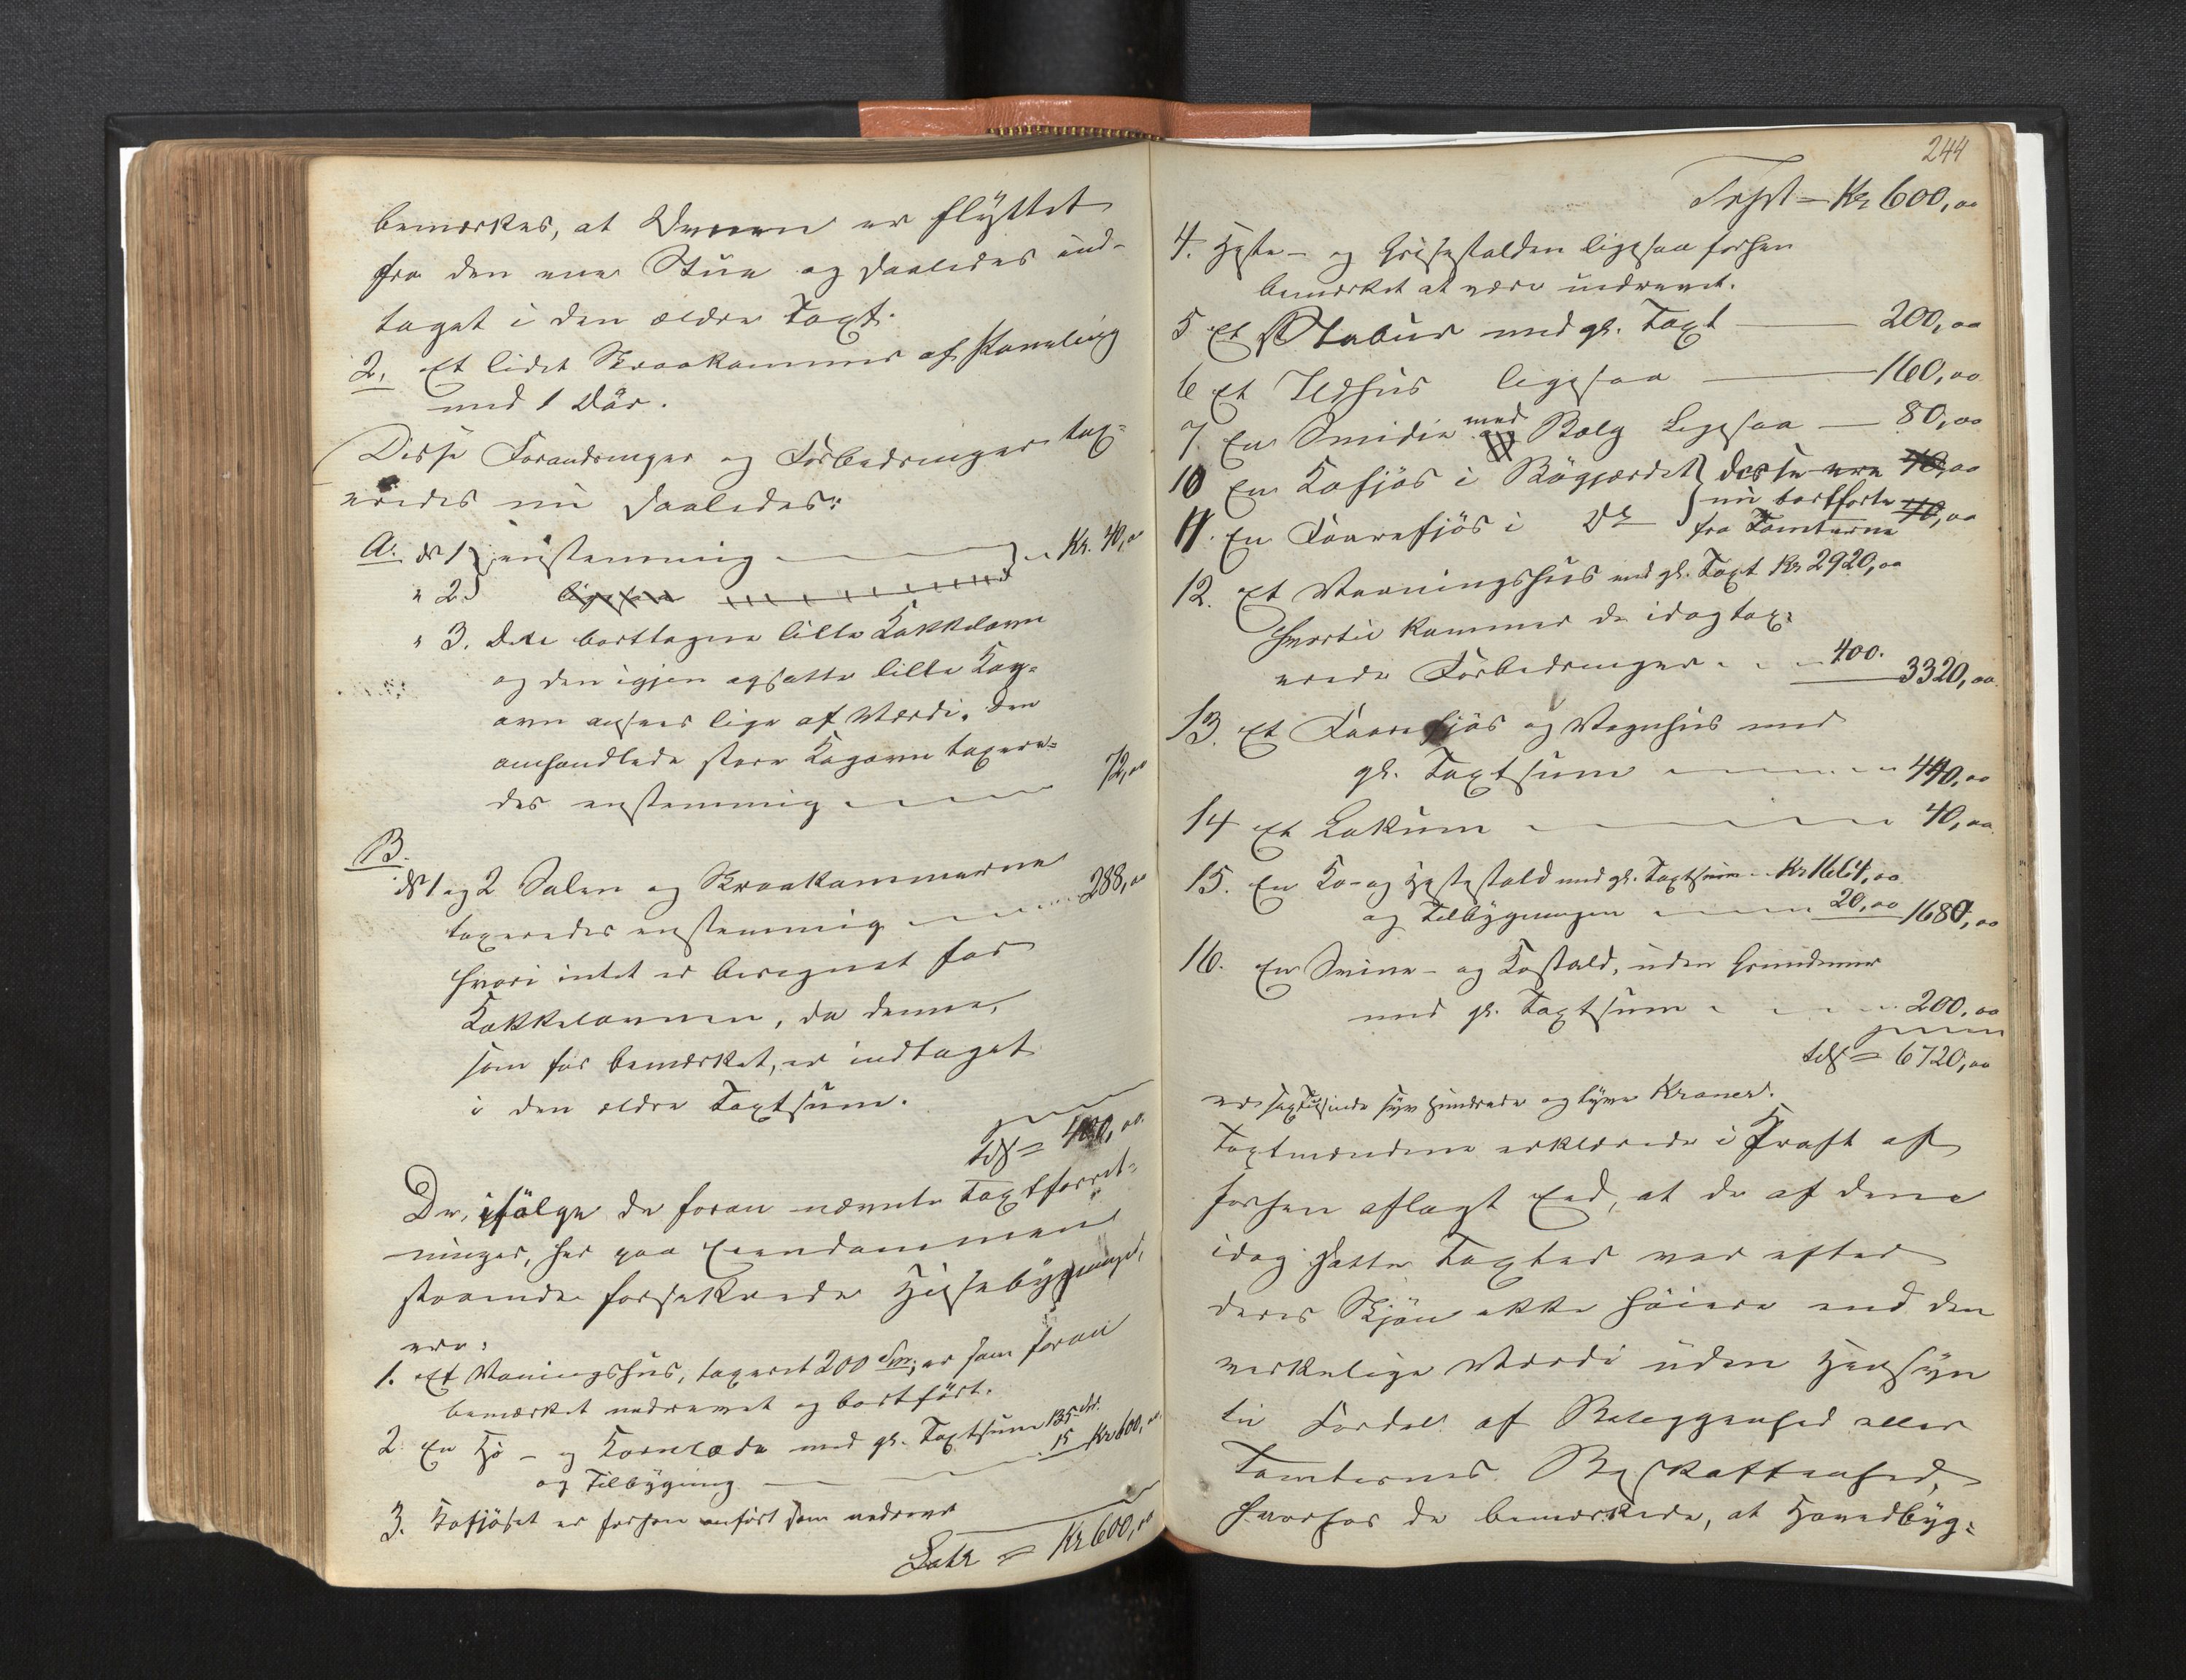 bemærkes, at Ovnen er flyttet
fra den ene Stue og saaledes ind-
taget i den ældre Taxt.
2. Et lidet Skraakammer af Paneling
med 1 Dör.
Disse Forandringer og Forbedringer tax-
eredes nu saaledes:
A. No 1 enstemmig Kr. 40,00
" 2 ligesaa
" 3. Den borttagne lille Kakkelovn
og den igjen opsatte lille Kog-
ovn ansees lige af Værdi. Den
omhandlede store Kogovn taxere-
des enstemmig 72,00
B.
No 1 og 2 Salen og Skraakammerne
taxeredes enstemmig 288,00
hvori intet er beregnet for
Kakkelovnen, da denne,
som för bemærket, er indtaget
i den ældre Taxtsum.
Tils = 400,00
De, ifölge de foran nævnte Taxtforret-
ninger, her paa Eiendommen
staaende forsikrede Husebygninger,
ere:
1. Et Vaaningshus, taxeret 200 Spd; er som foran
bemærket nedrevet og bortfört.
2. En Hö- og Kornlade med gl. Taxtsum 135 Spd.
og Tilbygning 15 Kr 600,00
3. Kofjöset er forhen anfört som nedrevet
Lats = Kr 600,00
244
Trpt = Kr 600,00
4. Heste- og Grisestalden ligesaa forhen
bemærket at være nedrevet.
5 Et Stabur med gl. Taxt 200,00
6 Et Ildhus ligesaa 160,00
7. En Smidie med Bælg Ligesaa 80,00
10 En Kofjös i Bögjærdet disse ere 40,00
nu bortförte
11. En Faarefjös i Do fra Tomterne 40,00
12. Et Vaaningshus med gl. Taxt Kr 2920,00
Hvortil kommer de idag tax-
erede Forbedringer 400. 3320,00
13. Et Faarefjös og Vognhus med
gl. Taxtsum 440,00
14 Et Lokum 40,00
15. En Ko- og Hestestald med gl. Taxtsum Kr 1664,00
og Tilbygningen 20,00 1680,00
16. En Svine- og Kostald, uden Grundmur
med gl. Taxtsum 200,00
Tils = 6720,00
er sextusinde syv hundrede og tyve Kroner.
Taxtmændene erklærede i Kraft af
forhen aflagt Eed, at de af dem
idag satte Taxter var efter
deres Skjön ikke höiere end den
virkelige Værdi uden Hensyn
til Fordel af Beliggenhed eller
Tomternes Beskaffenhed,
hvorhos de bemærkede, at Hovedbyg-